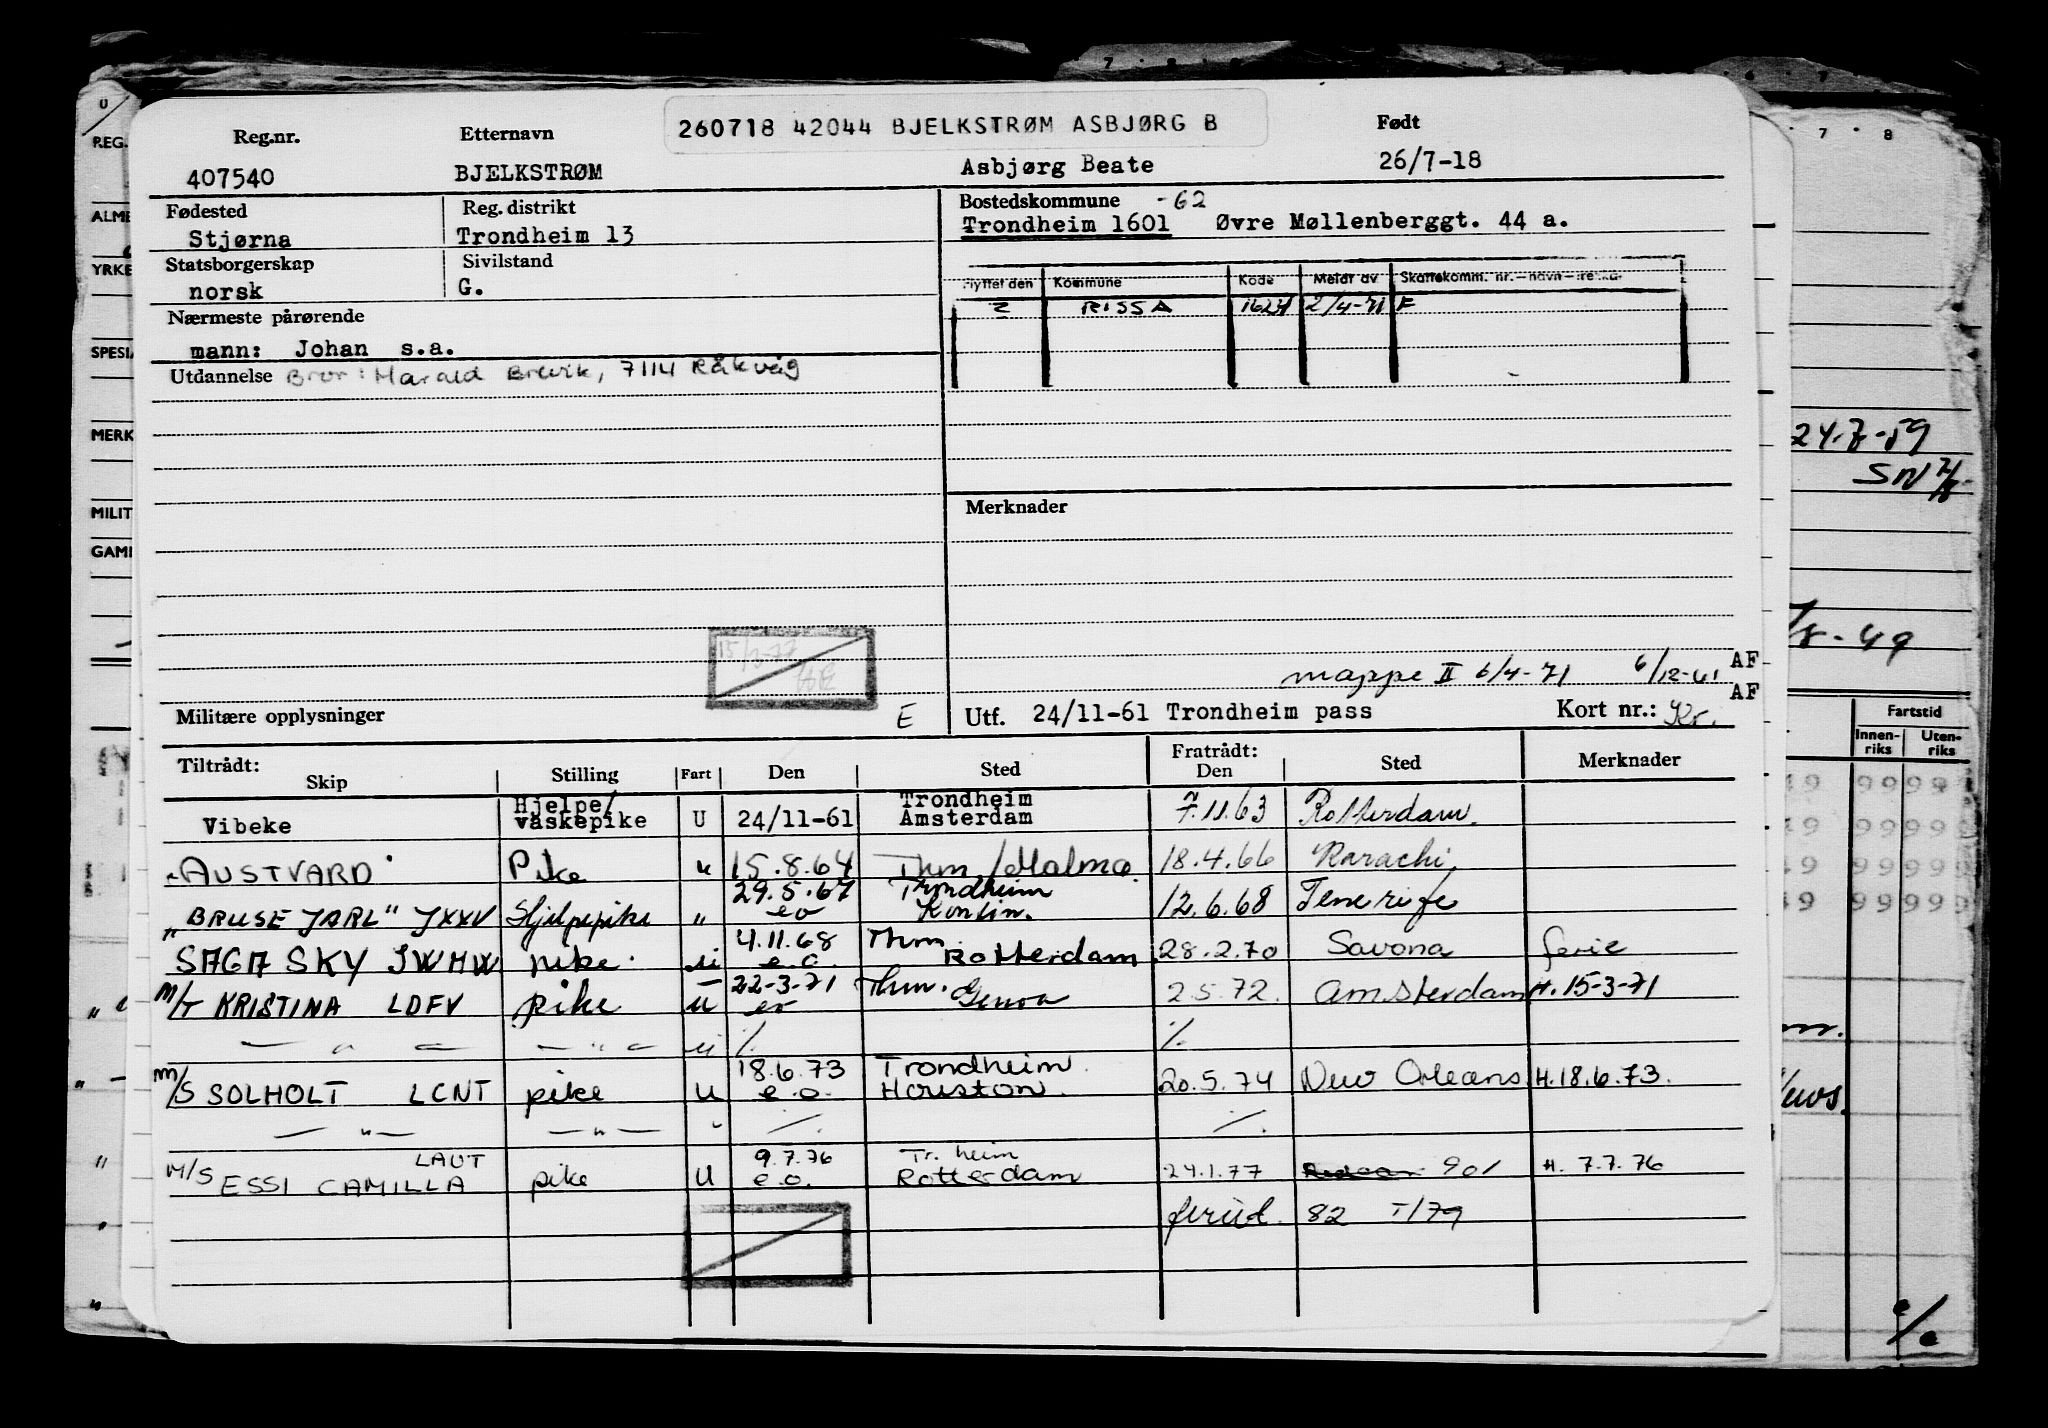 260718 42044 BJELKSTRØM ASBJØRG B
Reg.nr. Etternavn Født
407540 BJELKSTRØM Asbjørg Beate 26/7-18
Fødested Reg. distrikt Bostedskommune -62
Stjørna Trondheim 13 Trondheim 1601 Øvre Møllenberggt. 44 a.
Statsborgerskap Sivilstand
norsk G.
Flyttet den Kommune Kode Meldt av Skattekomm. nr. - navn -
RISSA 2/4-71 F
Nærmeste pårørende
mann: Johan s.a.
Utdannelse Bror: Harald Brevik, 7114 Råkvåg
Merknader
mappe II 6/4-71 6/12-61 AF
AF
Militære opplysninger E Utf. 24/11-61 Trondheim pass Kort nr.: Kr.
Tiltrådt: Fratrådt:
Skip Stilling Fart Den Sted Den Sted Merknader
Hjelpe/ Trondheim
Vibeke vaskepike U 24/11-61 Amsterdam 7.11.63 Rotterdam.
"AUSTVARD" Pike u 15.8.64 Thm./Malmø. 18.4.66 Karachi.
29.5.67 Trondheim
"BRUSE JARL" JXXV Hjelpepike " eo Kontin. 12.6.68 Tenerife
4.11.68 Thm
SAGA SKY JWMW pike. u e.o. Rotterdam 28.2.70 Savona ferie
22-3-71 Thm.
M/T KRISTINA LDFV pike u eo Genova 2.5.72. Amsterdam H. 15-3-71
— " — — " — u % %
18.6.73 Trondheim.
M/S SOLHOLT LCNT pike U e.o. Houston. 20.5.74 New Orleans H. 18.6.73.
— " — — " — " %. %.
LAUT 9.7.76 Tr. heim
M/S ESSI CAMILLA pike U e.o. Rotterdam 24.1.77 901 H. 7.7.76
82 T/79
REG.
ALME
YRKE
SPESI
MERK
MILIT
GAM
7 8
24-7-59
SN
8-49
Fartstid
Innen-riks Uten-riks
99 99
99 99
99 99
99 99